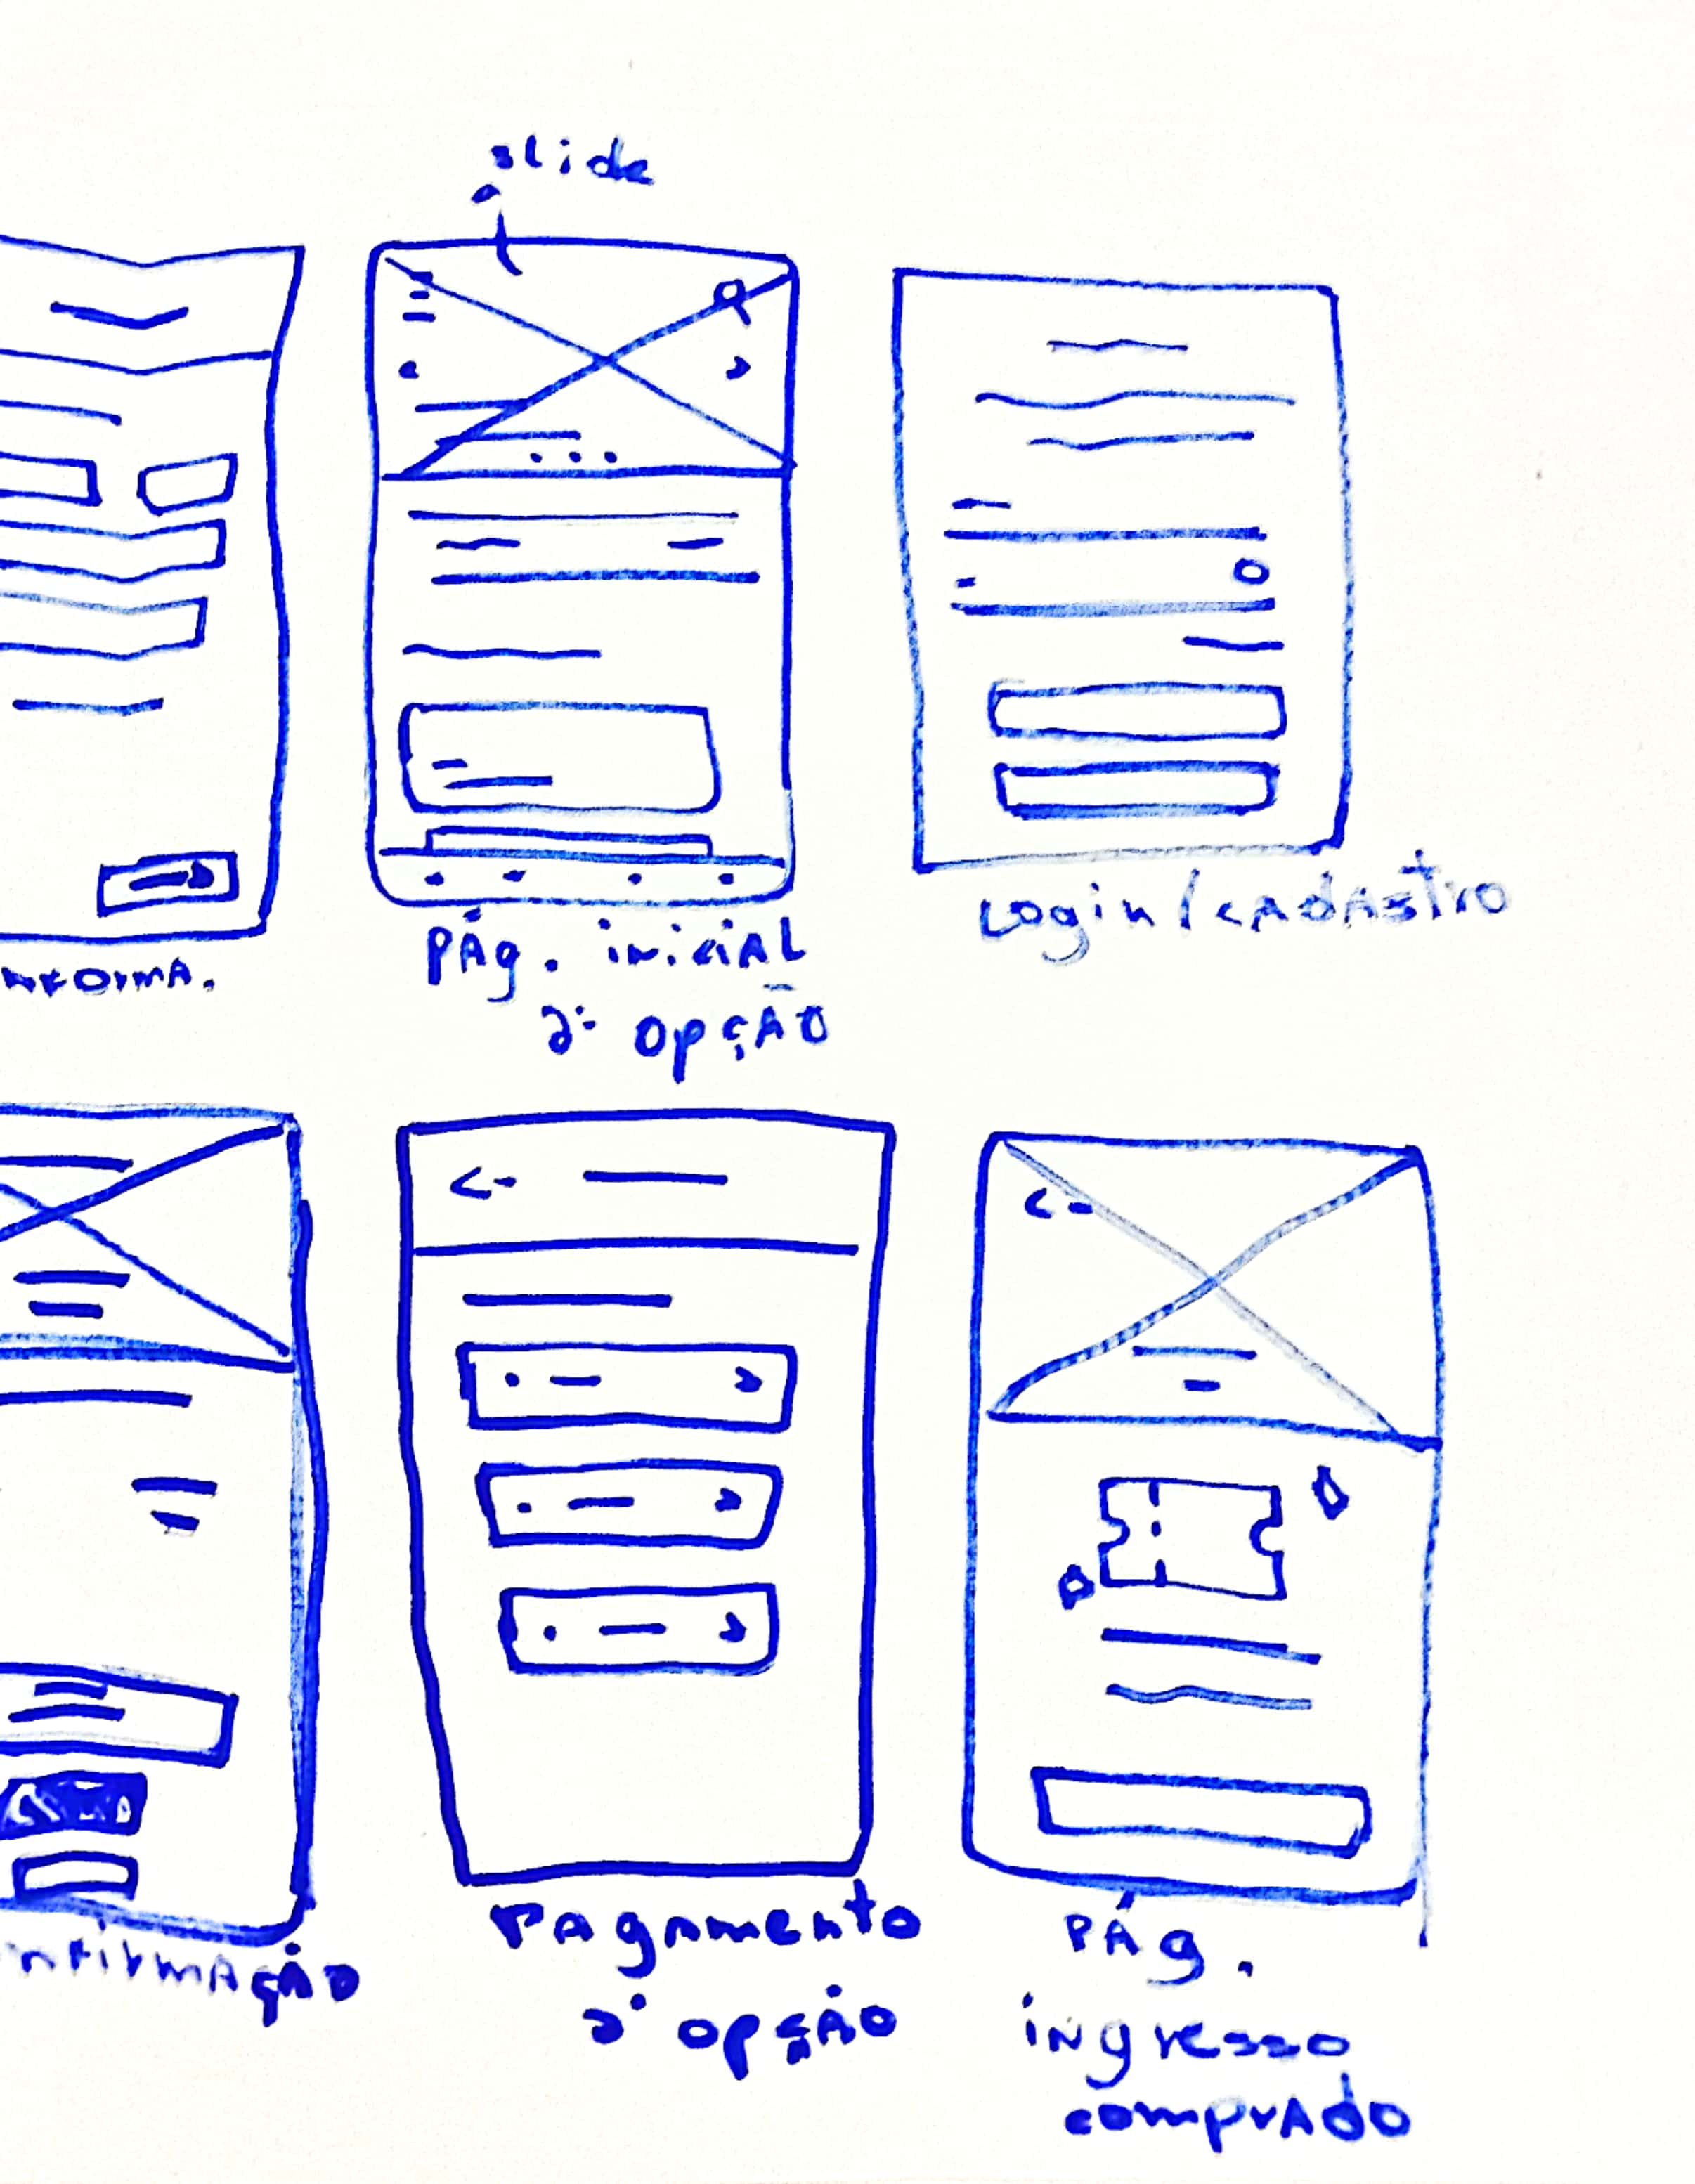 slide
nforma.
Pág. inicial
2ª opção
Login/cadastro
nfirmação
Pagamento
2ª opção
Pág.
ingresso
comprado